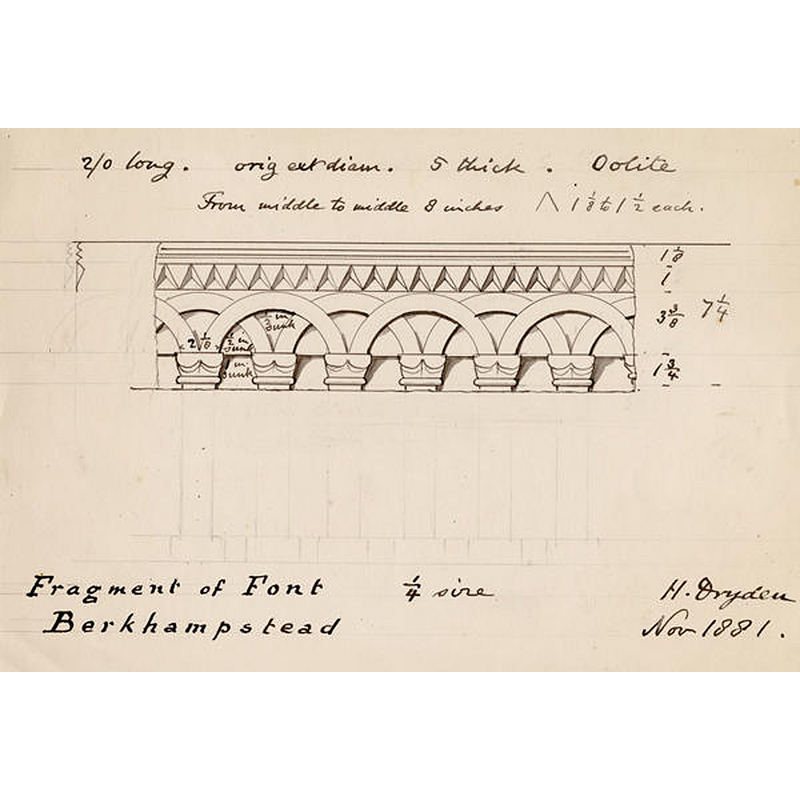 2/0 long. orig ext diam. 5 thick. Oolite
From middle to middle 8 inches ∧ 1 1/8 to 1 1/2 each.
1 1/8
1
3 3/8 7 1/4
1 3/4
1/2 in sunk
2 1/8 1/2 in sunk
1 in sunk
Fragment of Font 1/4 size H. Dryden
Berkhampstead Nov 1881.